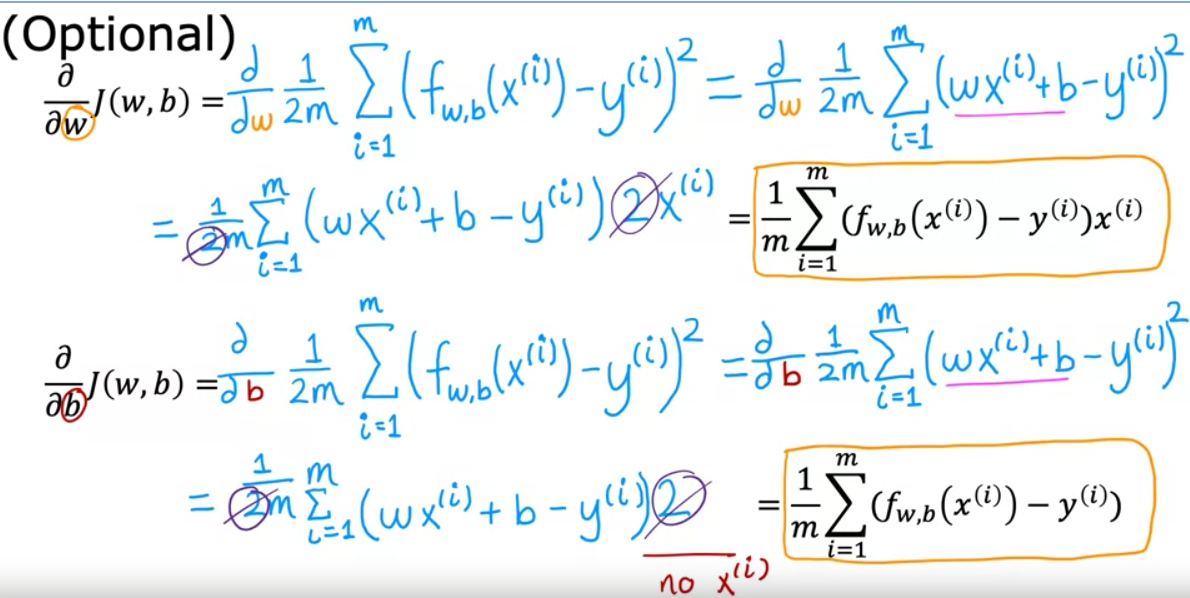 (Optional)
∂/∂w J(w, b) = ∂/∂w 1/2m ∑_{i=1}^{m} (f_{w,b}(x^{(i)}) - y^{(i)})^2 = ∂/∂w 1/2m ∑_{i=1}^{m} (wx^{(i)} + b - y^{(i)})^2
= 1/2m ∑_{i=1}^{m} (wx^{(i)} + b - y^{(i)}) 2x^{(i)} = 1/m ∑_{i=1}^{m} (f_{w,b}(x^{(i)}) − y^{(i)})x^{(i)}
∂/∂b J(w, b) = ∂/∂b 1/2m ∑_{i=1}^{m} (f_{w,b}(x^{(i)}) - y^{(i)})^2 = ∂/∂b 1/2m ∑_{i=1}^{m} (wx^{(i)} + b - y^{(i)})^2
= 1/2m ∑_{i=1}^{m} (wx^{(i)} + b - y^{(i)}) 2 = 1/m ∑_{i=1}^{m} (f_{w,b}(x^{(i)}) − y^{(i)})
no x^{(i)}